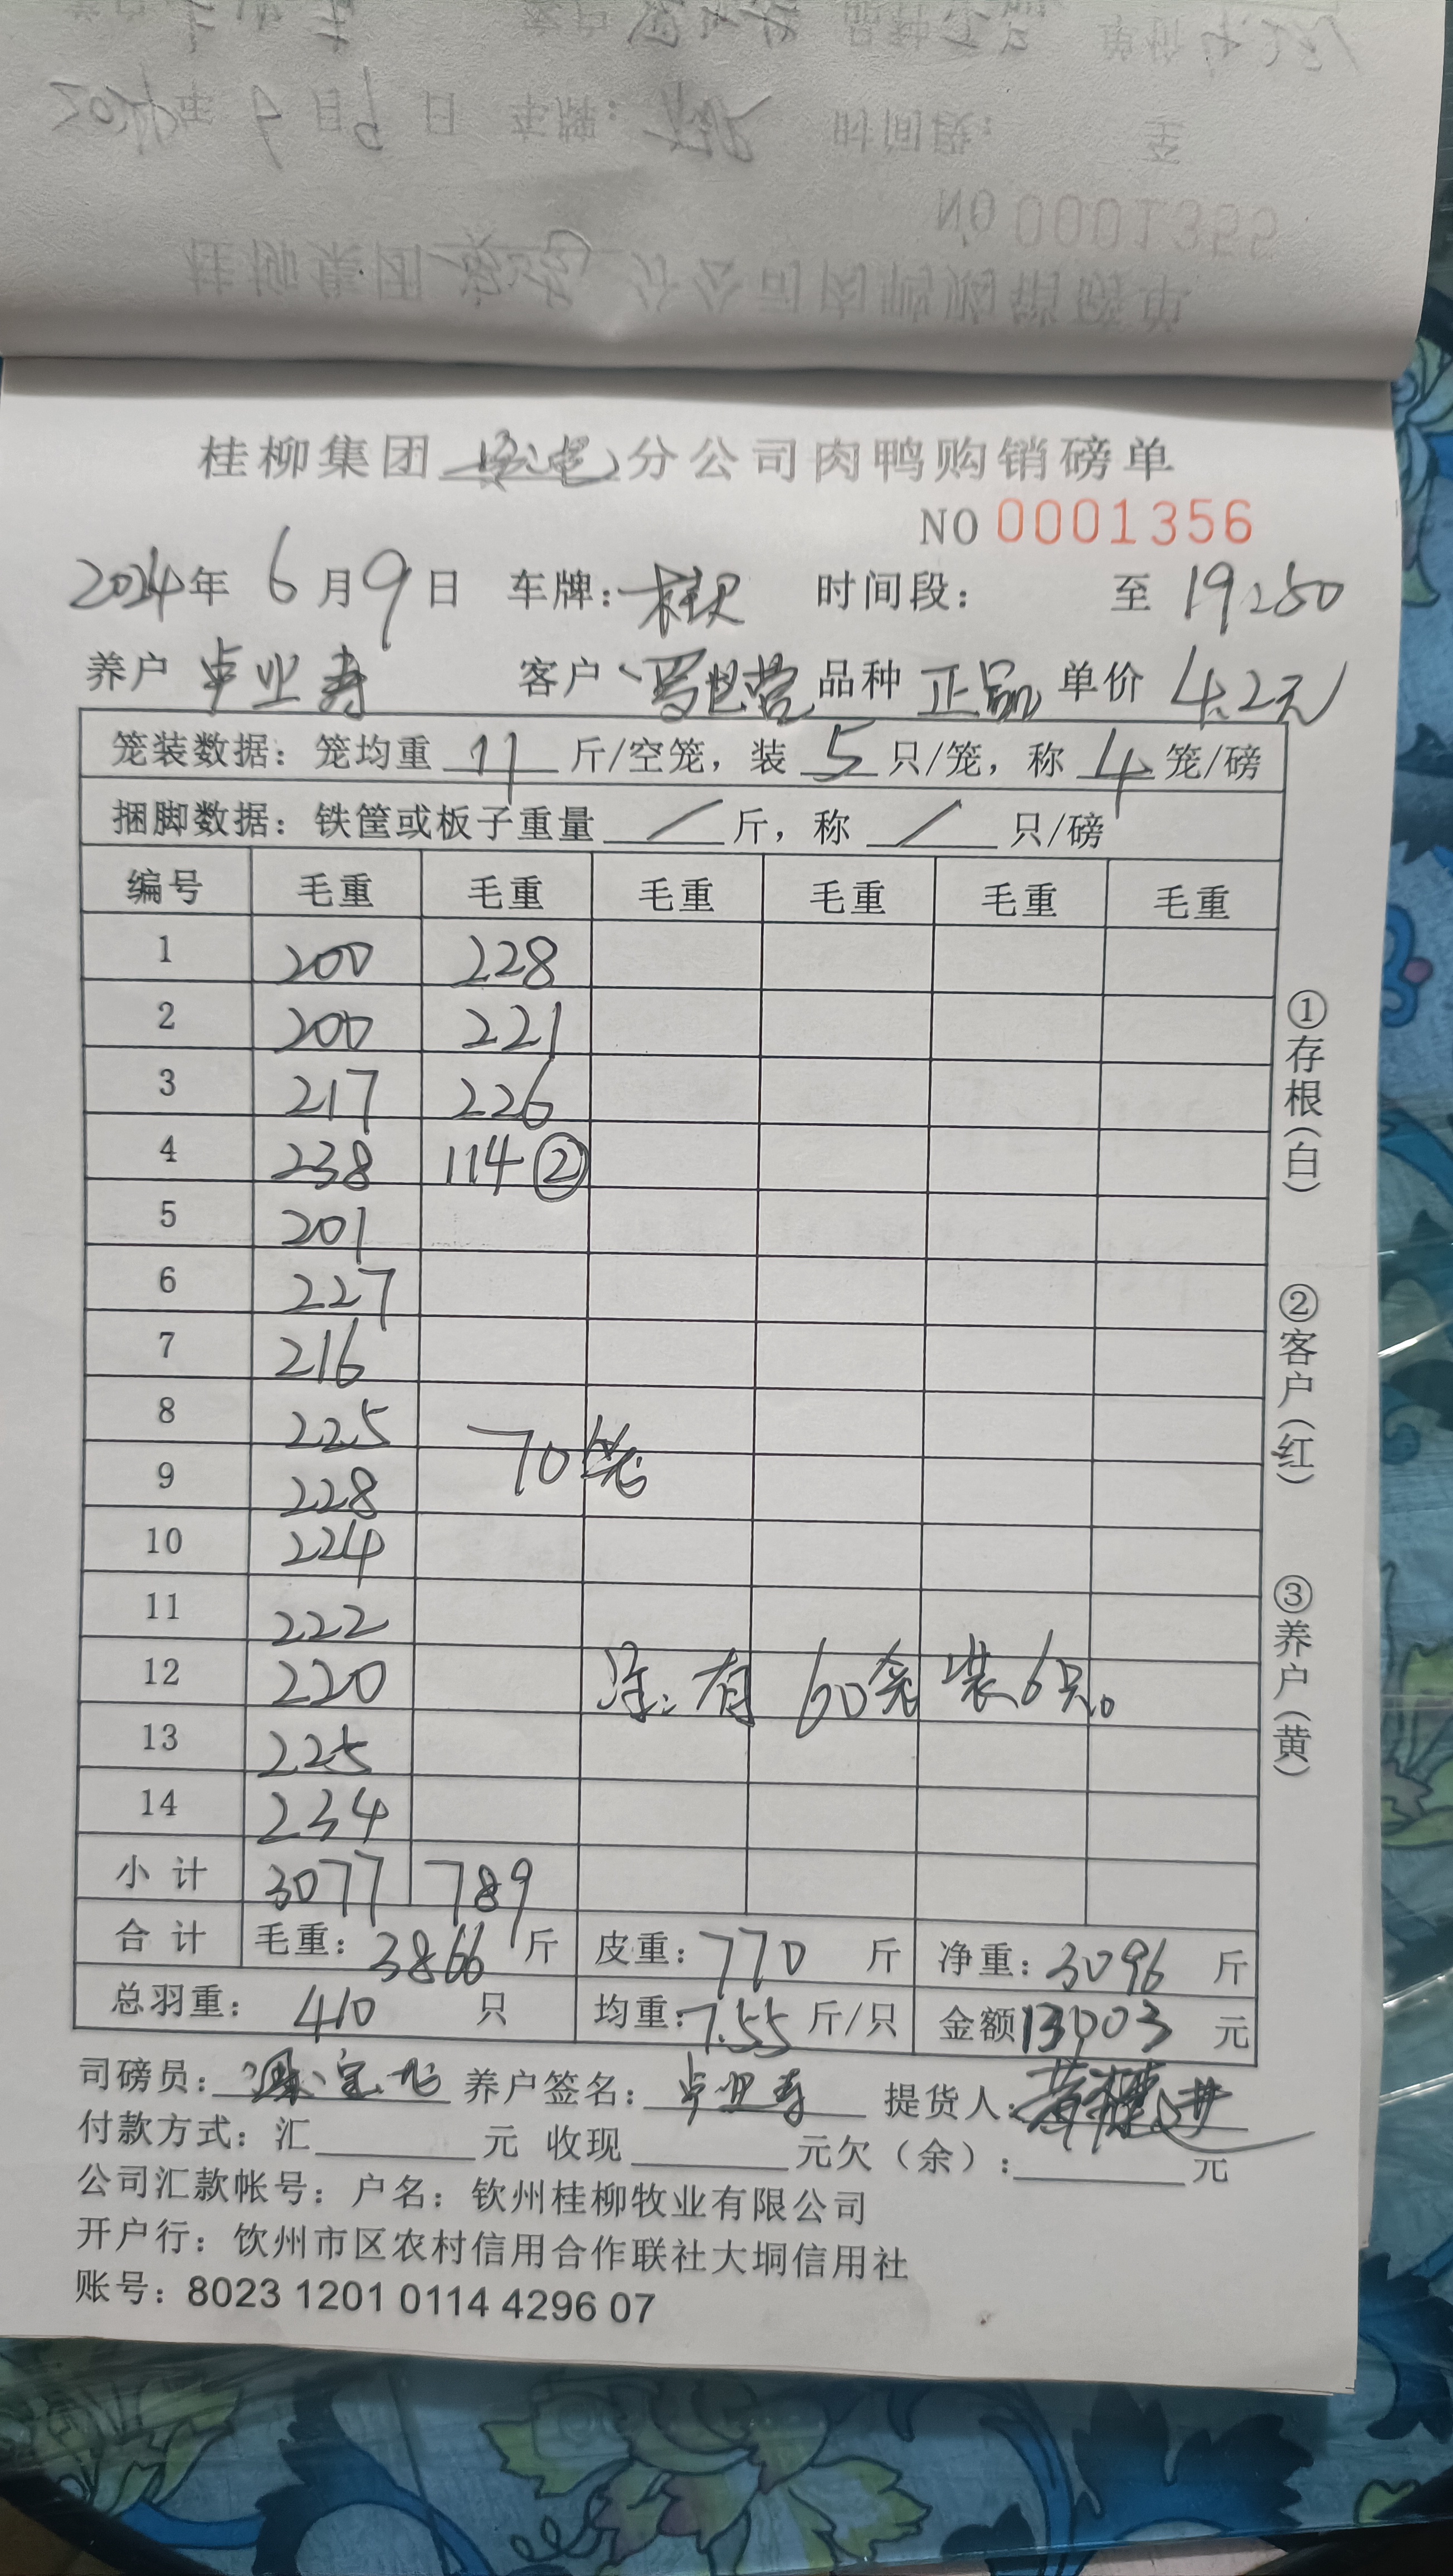 桂柳集团 分公司肉鸭购销磅单
NO 0001356
2024年 6月9日 车牌: 时间段: 至 19:50
养户 卓业寿 客户 罗世营 品种 正品 单价 4.2元
笼装数据: 笼均重 11 斤/空笼, 装 5 只/笼, 称 4 笼/磅
捆脚数据: 铁筐或板子重量 / 斤, 称 / 只/磅
编号 毛重 毛重 毛重 毛重 毛重 毛重
1 200 228
2 200 221
3 217 226
4 238 114 ②
5 201
6 227
7 216
8 225
70笼
9 228
10 224
11 222
12 220 注: 有 60笼 装6只。
13 225
14 234
小计 3077 789
合计 毛重: 3866 斤 皮重: 770 斤 净重: 3096 斤
总羽重: 410 只 均重: 7.55 斤/只 金额 13003 元
司磅员: 养户签名: 卓业寿 提货人:
付款方式: 汇 元 收现 元欠(余): 元
公司汇款帐号: 户名: 钦州桂柳牧业有限公司
开户行: 饮州市区农村信用合作联社大垌信用社
账号: 8023 1201 0114 4296 07
①存根(白)
②客户(红)
③养户(黄)